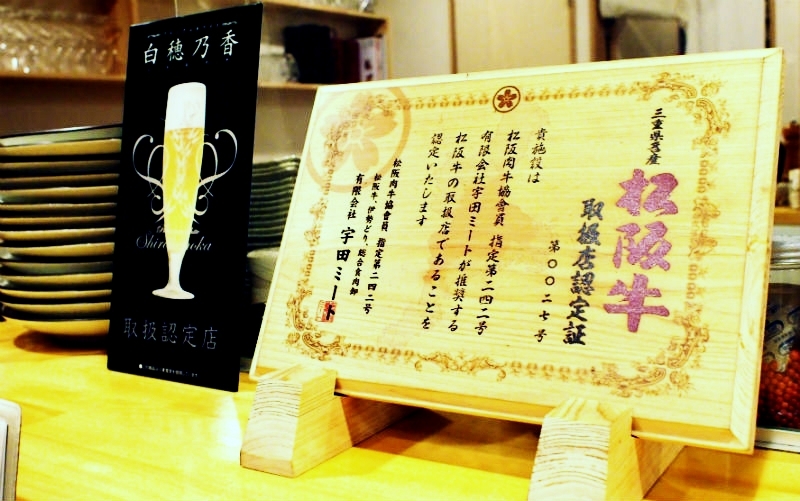 白穂乃香
取扱認定店
三重県产産
松阪牛
取扱店認定証
第〇〇二七号
貴施設は
松阪肉牛協會員 指定第二四二号
有限会社宇田ミートが推奨する
松阪牛の取扱店であることを
認定いたします
松阪肉牛協會員 指定第二四二号
松阪牛、伊勢どり、総合食肉卸
有限会社 宇田ミート